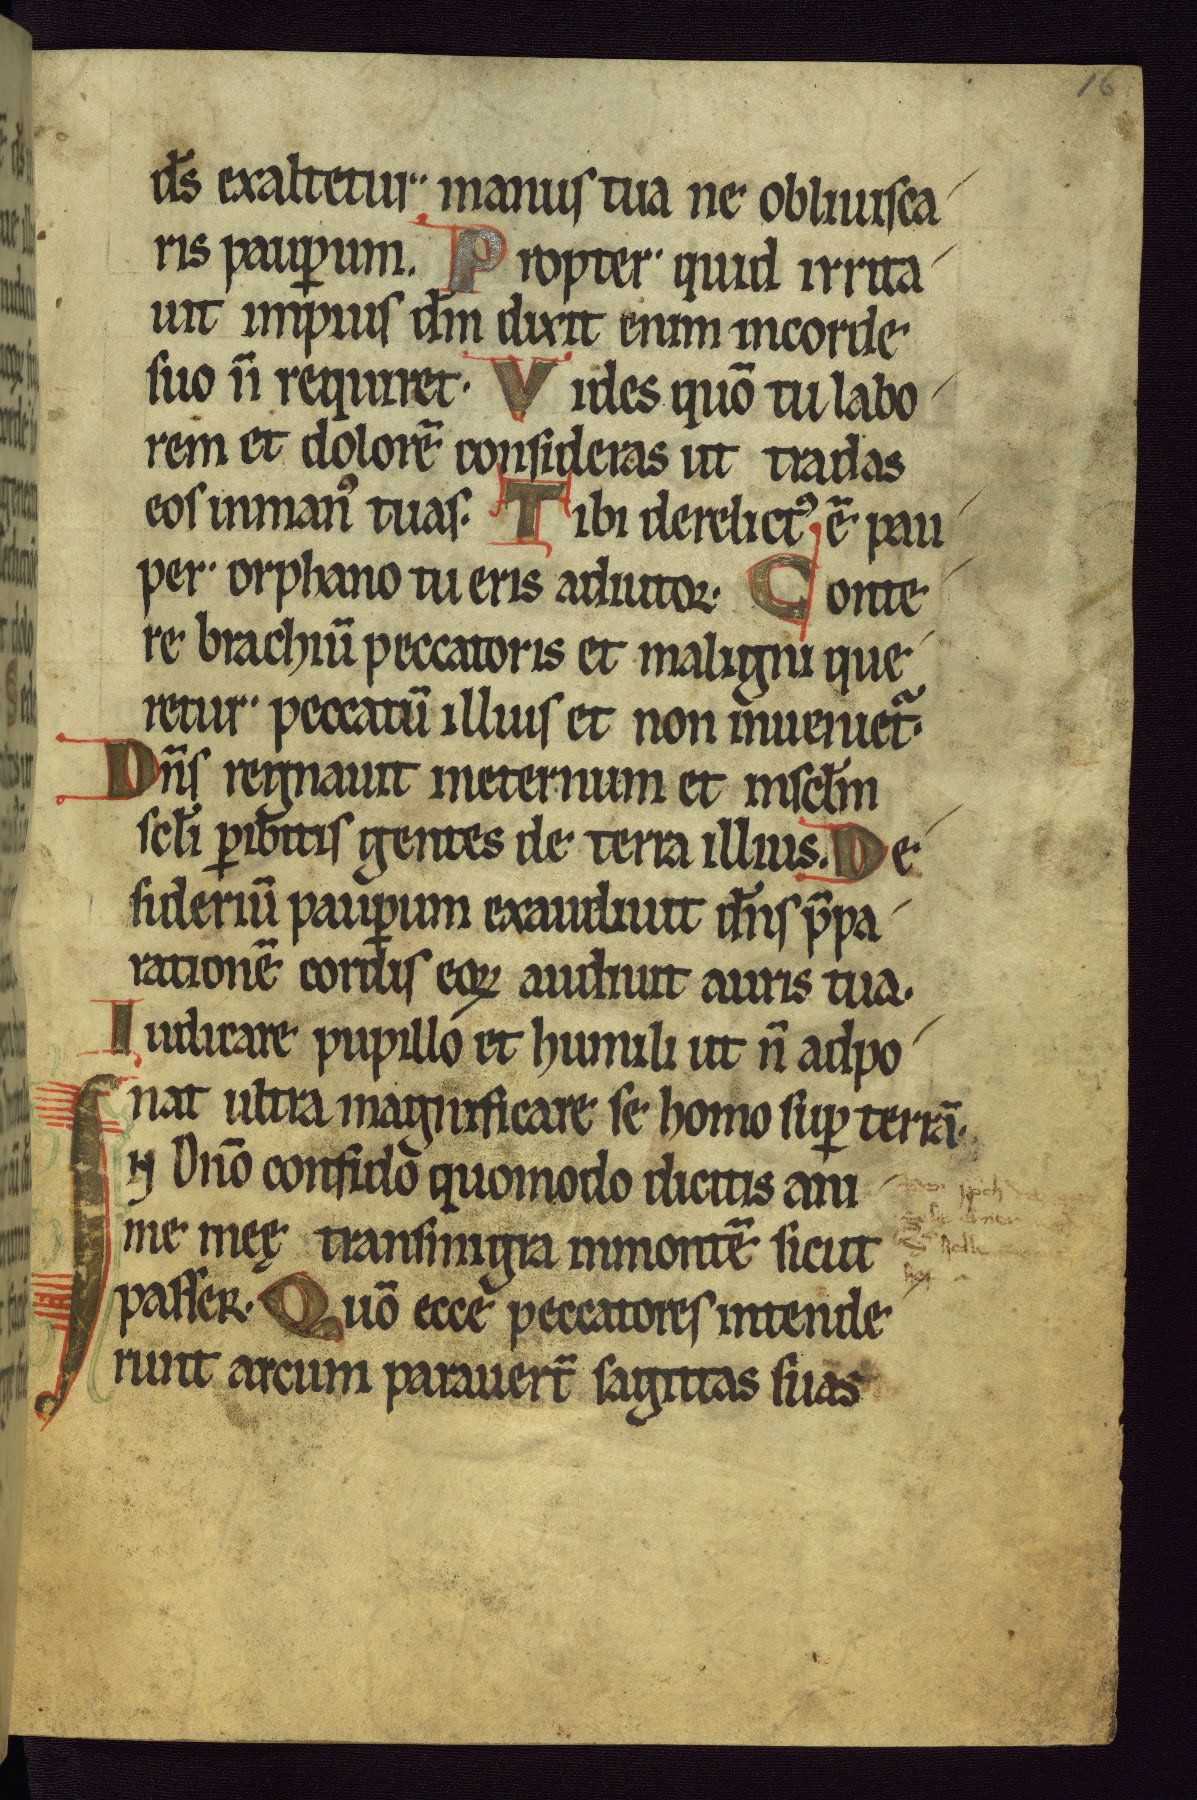 16
dṡ exaltetur manus tua ne obliuisca
ris pauꝑum. Propter quid irrita
uit impius dm̄ dixit enim incorde
suo n̄ requiret. Vides quō tu labo
rem et dolorē consideras ut tradas
eos inmanꝰ tuas. Tibi derelictꝰ ē pau
per orphano tu eris adiutor. Conte
re brachiū peccatoris et maligni que
retur peccatū illius et non inuenietᷣ.
Dn̄s regnauit ineternum et insclm̄
scli̅ ꝑibitis gentes de terra illius. De
sideriū pauꝑum exaudiuit dn̄s p̄pa
rationē cordis eoꝝ audiuit auris tua.
Iudicare pupillo et humili ut n̄ adpo
nat ultra magnificare se homo suꝑ terrā.
IN Dnō confido quomodo dicitis ani
me meę transmigra inmontē sicut
passer. Quō ecce peccatores intende
runt arcum parauert̄ sagittas suas